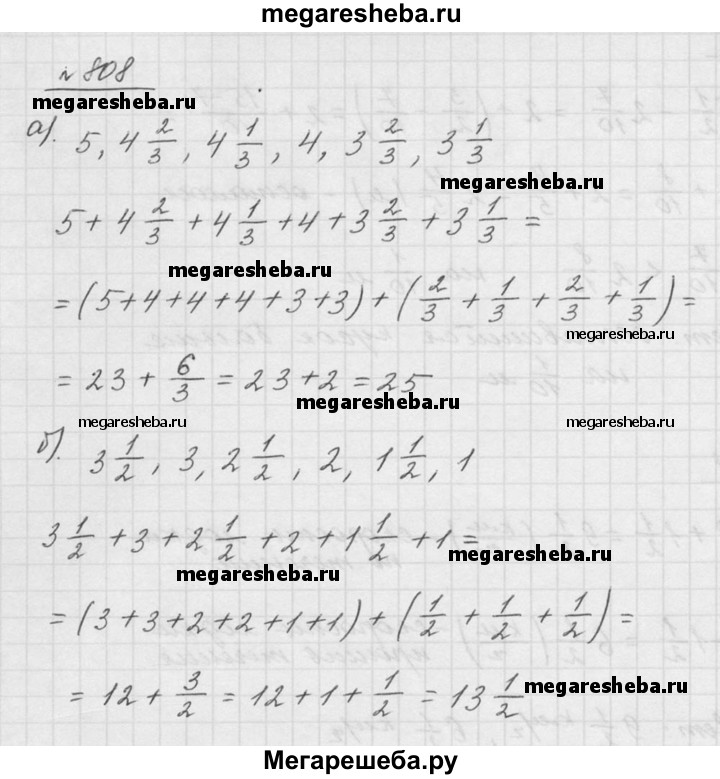 megaresheba.ru
№ 808
megaresheba.ru
а). 5, 4 2/3, 4 1/3, 4, 3 2/3, 3 1/3
megaresheba.ru
5 + 4 2/3 + 4 1/3 + 4 + 3 2/3 + 3 1/3 =
megaresheba.ru
= (5+4+4+4+3+3) + (2/3 + 1/3 + 2/3 + 1/3) =
megaresheba.ru
= 23 + 6/3 = 23+2 = 25
megaresheba.ru
megaresheba.ru
megaresheba.ru
б). 3 1/2, 3, 2 1/2, 2, 1 1/2, 1
3 1/2 + 3 + 2 1/2 + 2 + 1 1/2 + 1 =
megaresheba.ru
megaresheba.ru
= (3+3+2+2+1+1) + (1/2 + 1/2 + 1/2) =
= 12 + 3/2 = 12 + 1 + 1/2 = 13 1/2
megaresheba.ru
Мегарешеба.ру